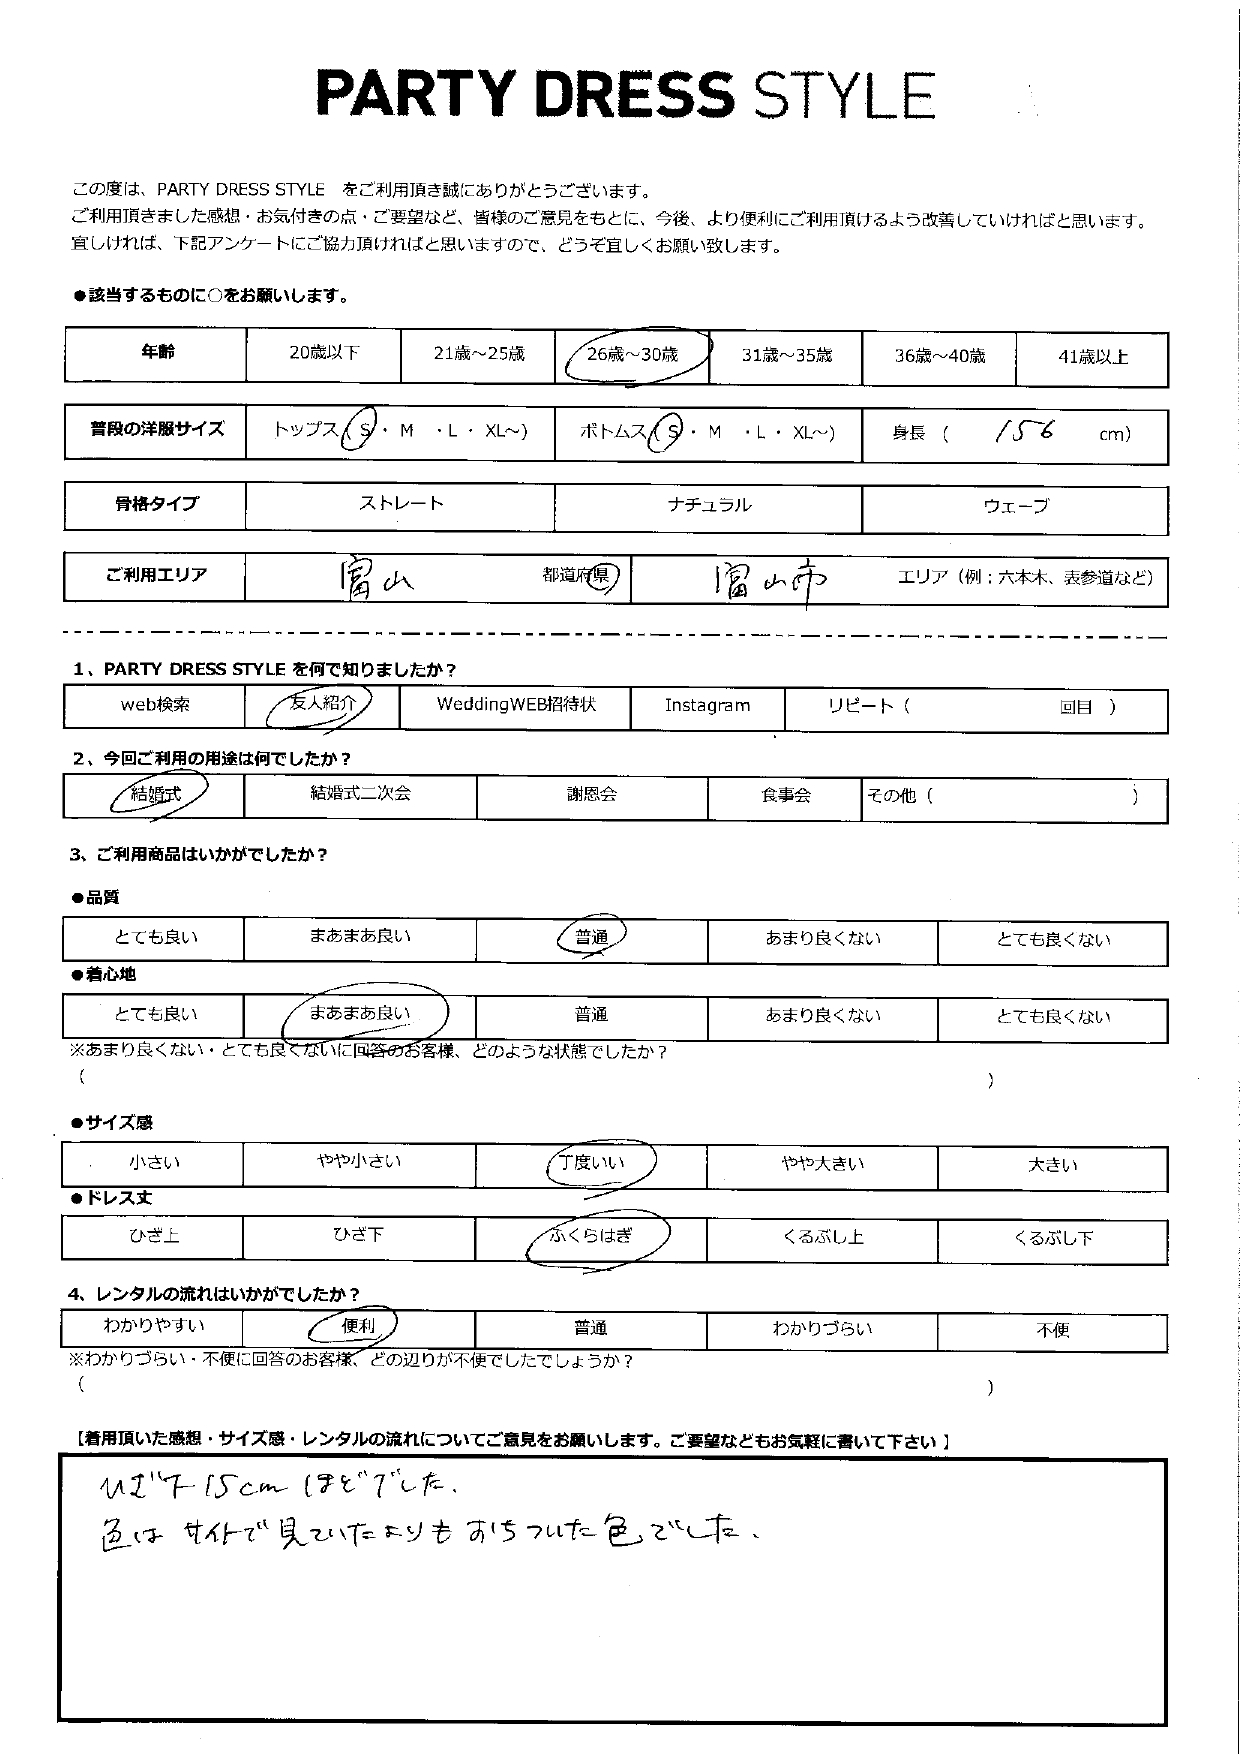 PARTY DRESS STYLE
この度は、PARTY DRESS STYLE　をご利用頂き誠にありがとうございます。
ご利用頂きました感想・お気付きの点・ご要望など、皆様のご意見をもとに、今後、より便利にご利用頂けるよう改善していければと思います。
宜しければ、下記アンケートにご協力頂ければと思いますので、どうぞ宜しくお願い致します。
●該当するものに○をお願いします。
年齢 20歳以下 21歳～25歳 26歳～30歳 31歳～35歳 36歳～40歳 41歳以上
普段の洋服サイズ トップス( S ・ M ・L ・ XL～) ボトムス( S ・ M ・L ・ XL～) 身長 ( 156 cm)
骨格タイプ ストレート ナチュラル ウェーブ
ご利用エリア 富山 都道府県 富山市 エリア（例：六本木、表参道など）
1、PARTY DRESS STYLE を何で知りましたか？
web検索 友人紹介 WeddingWEB招待状 Instagram リピート（ 回目 ）
2、今回ご利用の用途は何でしたか？
結婚式 結婚式二次会 謝恩会 食事会 その他（ ）
3、ご利用商品はいかがでしたか？
●品質
とても良い まあまあ良い 普通 あまり良くない とても良くない
●着心地
とても良い まあまあ良い 普通 あまり良くない とても良くない
※あまり良くない・とても良くないに回答のお客様、どのような状態でしたか？
（ ）
●サイズ感
小さい やや小さい 丁度いい やや大きい 大きい
●ドレス丈
ひざ上 ひざ下 ふくらはぎ くるぶし上 くるぶし下
4、レンタルの流れはいかがでしたか？
わかりやすい 便利 普通 わかりづらい 不便
※わかりづらい・不便に回答のお客様、どの辺りが不便でしたでしょうか？
（ ）
【着用頂いた感想・サイズ感・レンタルの流れについてご意見をお願いします。ご要望などもお気軽に書いて下さい 】
ひざ下15cmほどでした.
色はサイトで見ていたよりもおちついた色でした.